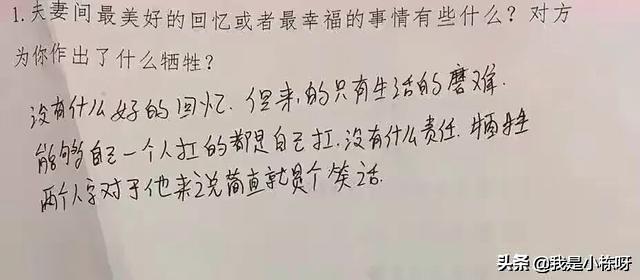 1.夫妻间最美好的回忆或者最幸福的事情有些什么？对方
为你作出了什么牺牲？
没有什么好的回忆.但来的只有生活的磨难.
能够自己一个人扛的都是自己扛.没有什么责任.牺牲
两个人字对于他来说简直就是个笑话.
头条 @我是小栋呀